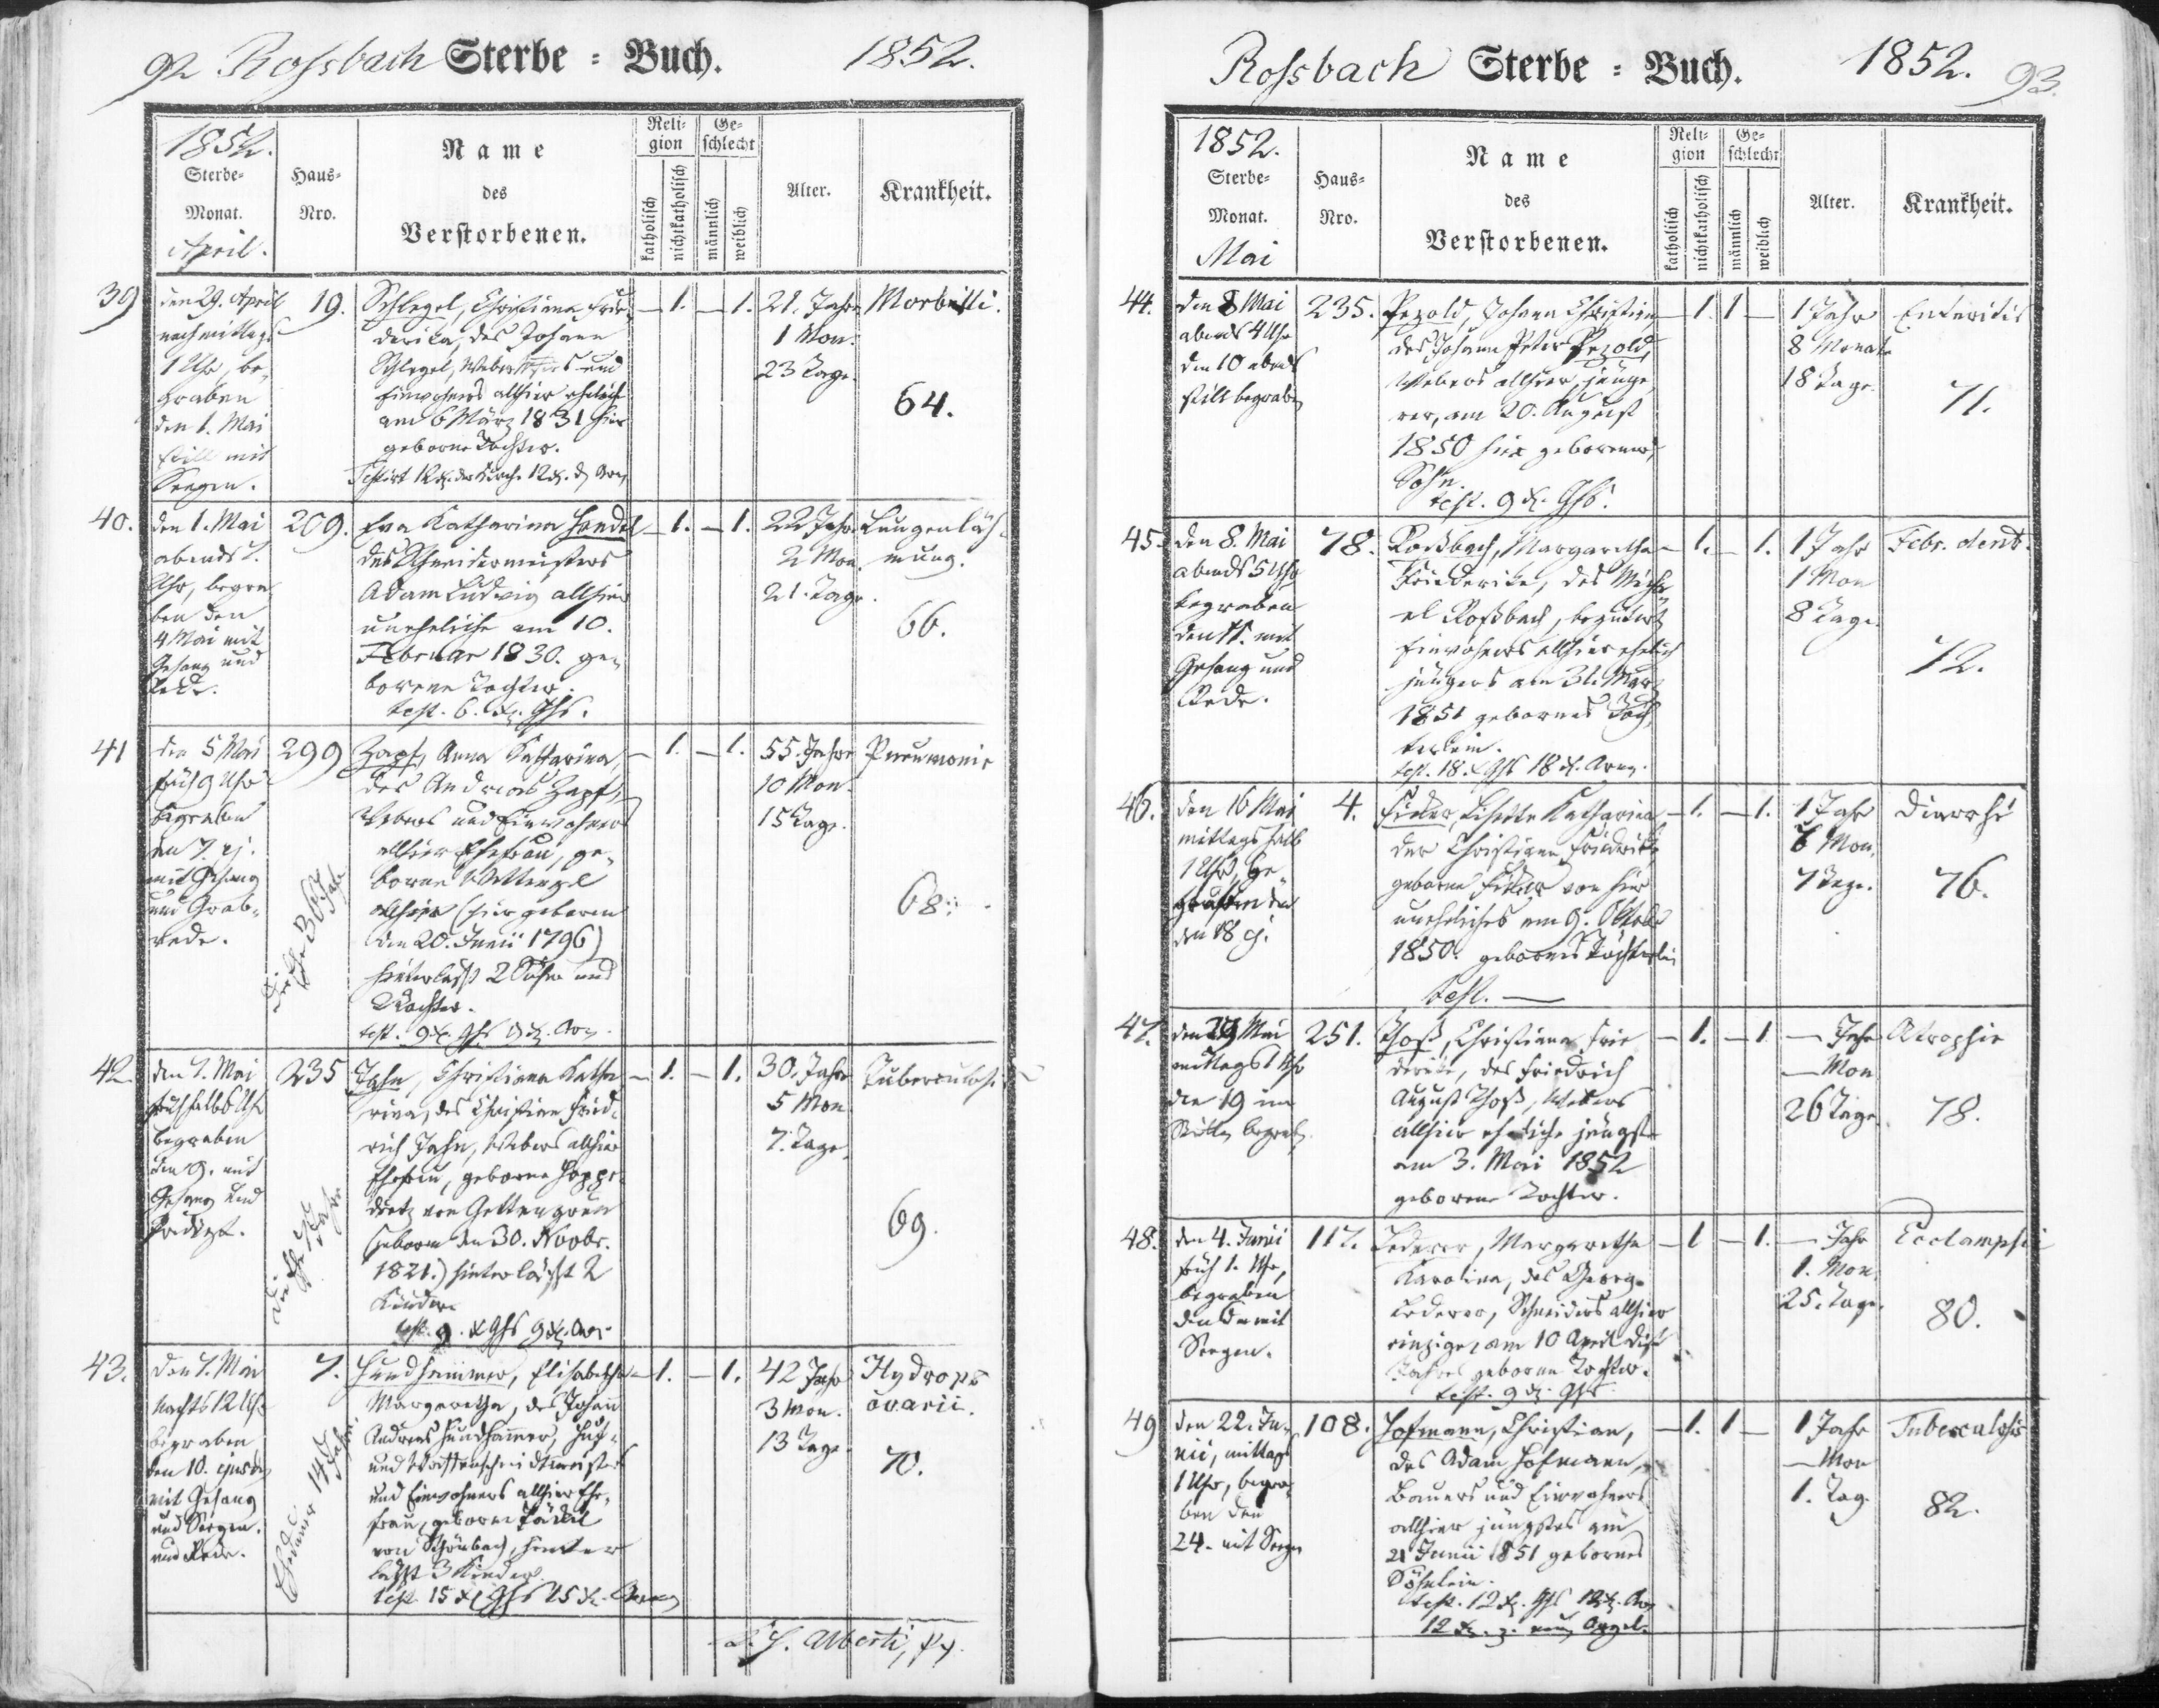 92 Rossbach Sterbe = Buch. 1852.
1852.
Sterbe-
Monat.
April.
Haus-
Nro.
Name
des
Verstorbenen.
Reli-
gion
katholisch
nichtkatholisch
Ge-
schlecht
männlich
weiblich
Alter.
Krankheit.
39
den 29. April
nachmittags
1 Uhr, be-
graben
den 1. Mai
still mit
Seegen.
19.
Schlegel, Christiana Frie-
derika, des Johann
Schlegel, Weber und
Einwohners allhier ehelich
am 6 März 1831 hier
geborne Tochter.
— 1. — 1.
21. Jahre
1 Mon.
23 Tage.
Morbilli.
64.
40.
den 1. Mai
abends 7.
Uhr, begra
ben den
4 Mai mit
Gesang und
Rede.
209.
Eva Katharina Handel
des Schneidermeisters
Adam Ludwig allhier
uneheliche am 10.
Februar 1830. ge-
borene Tochter.
test. 6. x. Ghs.
— 1. — 1.
22 Jahr
2 Mon.
21. Tage.
Lungenläh-
mung.
66.
41
den 5 Mai
früh 9 Uhr
begraben
den 7. ej.
mit Gesang
und Grab-
rede.
299
Zapf, Anna Katharina,
des Andreas Zapf,
Webers und Einwohners
allhier Ehefrau, ge-
borne Wettengel
allhier (hier geboren
den 20. Junii 1796)
hinterläßt 2 Söhne und
Tochter.
— 1. — 1.
55 Jahre
10 Mon.
15 Tage.
Pneumonie
68.
42.
den 7. Mai
früh halb 6 Uhr
begraben
den 9. mit
Gesang und
Predigt.
235
Jahn, Christiana Katha
rina, des Christian Fried-
rich Jahn, Webers allhier
Ehefrau, geborne Hoppe-
dietz von Gettengrün
(geboren den 30. Novbr.
1821.) hinterläßt 2
Kinder.
— 1. — 1.
30. Jahre
5 Mon
7. Tage.
Tuberculos.
69.
43.
den 7. Mai
Nachts 12 Uhr
begraben
den 10. ejusd.
mit Gesang
und Seegen.
und Rede.
7.
Hundhammer, Elisabetha
Margaretha, des Johann
Andreas Hundhammer, Huf-
und Waffenschmidtmeisters
und Einwohners allhier Ehe-
frau, geborne Jäckel
von Schönbach, hinter
läßt 3 Kinder.
— 1. — 1.
42 Jahr
3 Mon.
13 Tage
Hydrops
ovarii.
70.
Alberti, Pf.
Rossbach Sterbe = Buch. 1852. 93.
1852.
Sterbe-
Monat.
Mai
Haus-
Nro.
Name
des
Verstorbenen.
Reli-
gion
katholisch
nichtkatholisch
Ge-
schlecht
männlich
weiblich
Alter.
Krankheit.
44.
den 8 Mai
abends 4 Uhr
den 10 abends
still begraben
235.
Pezold, Johann Christian,
des Johann Peter Pezold,
Webers allhier, jünge
rer, am 20. August
1850 hier geborener
Sohn.
test. 9 x. Ghs.
— 1. 1 —
1 Jahr
8 Monate
18 Tage.
Enteritis
71.
45.
den 8. Mai
abends 5 Uhr
begraben
den 11. mit
Gesang und
Rede.
78.
Roßbach, Margaretha
Friederike, des Micha
el Roßbach, begüterten
Einwohners allhier ehelich
jüngers am 31. März
1851 gebornes Töch
terlein.
test. 18. x Ghs 18 x. Arm.
— 1. — 1.
1 Jahr
1 Mon
8 Tage.
Febr. dent.
72.
46.
den 16 Mai
mittags halb
1 Uhr, be-
graben
den 18 ej.
4.
Lisette Katharina,
der Christiana Friedrike
geborne von hier
uneheliches am 9. Oktobr
1850. gebornes Töchterlein
test. —
— 1. — 1.
1 Jahr
Mon.
7 Tage.
Diarrhö
76.
47.
den 29 Mai
mittags 1 Uhr
251.
Thoß, Christiana Frie
derike, des Friedrich
August Thoß, Webers
allhier eheliche jüngste
am 3. Mai 1852
geborene Tochter.
— 1. — 1
— Jahr
— Mon
26 Tage
Atrophie
78.
48.
den 4. Junii
früh 1. Uhr,
begraben
den mit
Seegen.
117.
Lederer, Margaretha
Karolina, des Georg
Lederer, Schneiders allhier
einzige, am 10 April dies.
Jahres geborne Tochter.
test. 9 x. Ghs
— 1 — 1.
— Jahr
1. Mon.
25. Tage.
Ecclampsie
80.
49
den 22. Ju-
nii, mittags
1 Uhr, begra-
ben den
24. mit Seegen
108.
Hofmann, Christian,
des Adam Hofmann,
Bauers und Einwohners
allhier jüngstes am
21 Junii 1851 gebornes
Söhnlein.
test. 12 x. Ghs 12 x. Arm
12 x. z. neuen Orgel.
— 1. 1 —
1 Jahr
— Mon
1. Tag.
Tuberculosis
82.